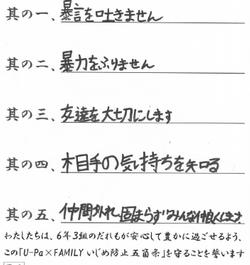 其の一、暴言を吐きません
其の二、暴力をふりません
其の三、友達を大切にします
其の四、相手の気持ちを知る
其の五、仲間外れ、固まらずみんな仲良くします
わたしたちは、6年3組のだれもが安心して豊かに過ごせるよう、
この「U-Pa×FAMILY いじめ防止五箇条」を守ることを誓います